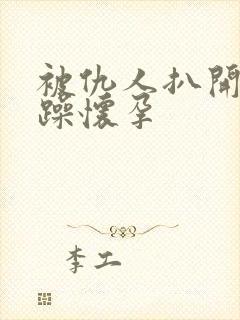 被仇人扒開
躁懷孕
李工